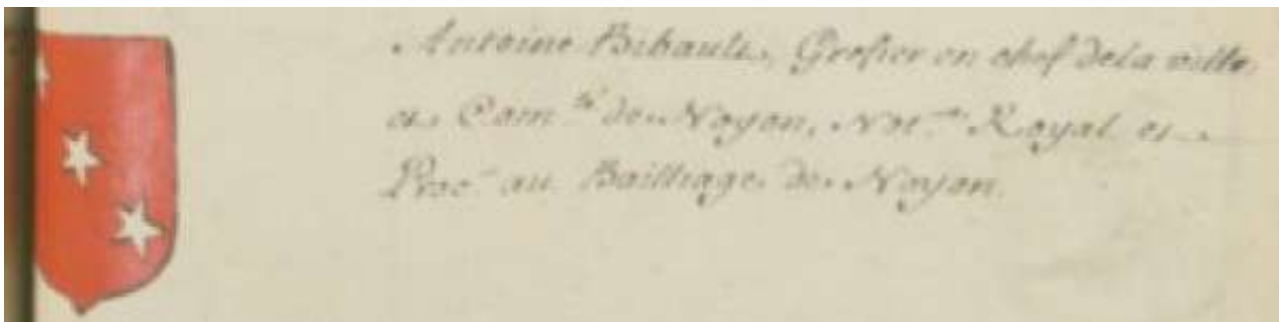 Antoine Bibault, Grefier en chef de la ville
et Com.té de Noyon, Not.re Royal et
Proc.r au Bailliage de Noyon.